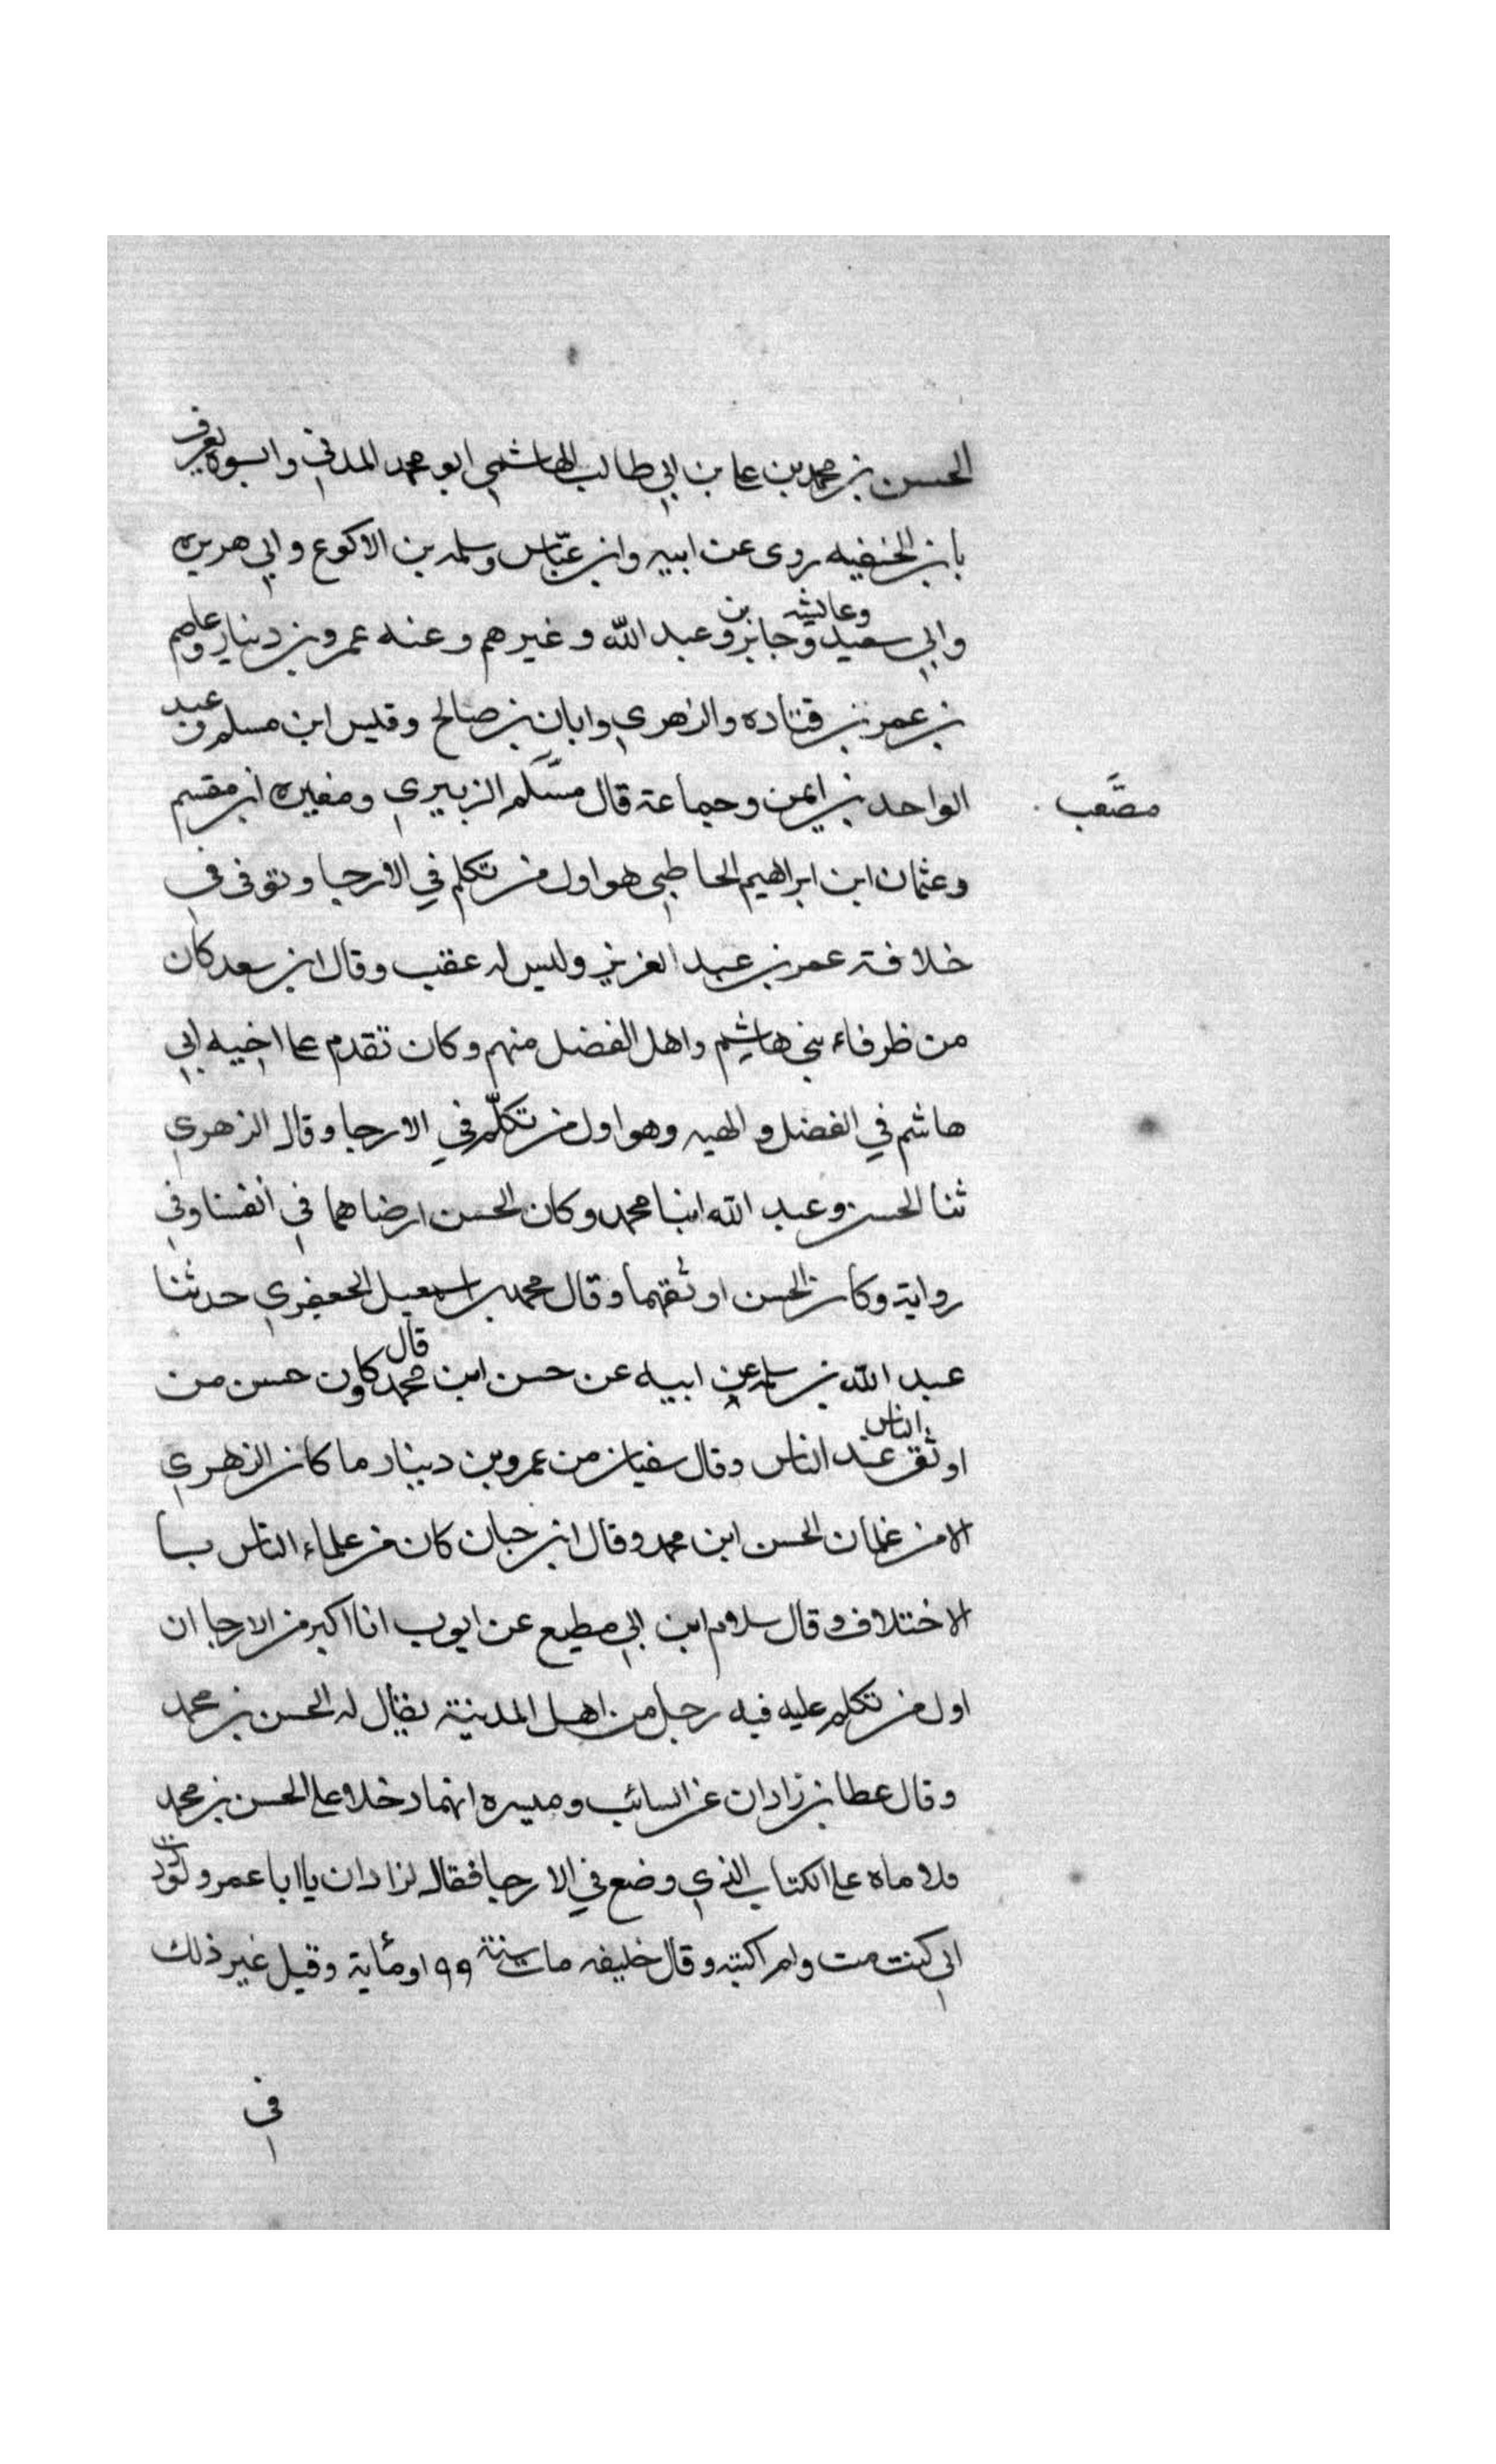 الحسن بن محمد بن على بن ابي طالب الهاشمي ابو محمد المدني وابوه يعرف
بابن الحنفيه روى عن ابيه وابن عبّاس وسلمه بن الاكوع وابي هريره
وابي سعيد وعائشه وجابر بن وعبد الله وغيرهم وعنه عمرو بن دينار وعاصم
بن عمر بن قتاده والزهري وابان بن صالح وقيس ابن مسلم وعبد
الواحد بن ايمن وجماعة قال مسلم الزبيري ومغيره ابن مقسم
مصعب
وعثمان ابن ابراهيم الحاطبي هو اول من تكلم في الارجا وتوفى في
خلافة عمر بن عبد العزيز وليس له عقب وقال ابن سعد كان
من ظرفاء بني هاشم واهل الفضل منهم وكان تقدم على اخيه ابي
هاشم في الفضل والهيه وهو اول من تكلّم في الارجا وقال الزهري
ثنا الحسن وعبد الله ابنا محمد وكان الحسن ارضاهما في انفسنا وفي
رواية وكان الحسن اوثقهما وقال محمد بن اسمعيل الجعفري حدثنا
عبد الله بن سلمه عن ابيه عن حسن ابن محمد قال وكان حسن من
اوثق الناس عند الناس وقال سفيان من عمرو بن دينار ما كان الزهري
الا من غلمان الحسن ابن محمد وقال ابن حبان كان من علماء الناس بسا
الاختلاف وقال سلام ابن ابي مطيع عن ايوب انا اكبر من الارجا ان
اول من تكلم عليه فيه رجل من اهل المدينة يقال له الحسن بن محمد
وقال عطا بن زادان عن السائب وميسره انهما دخلا على الحسن بن محمد
فلاماه على الكتاب الذي وضع في الارجا فقال لزادان يا ابا عمرو لوددت
اني كنت مت ولم اكتبه وقال خليفه مات سنة ٩٩ او مأية وقيل غير ذلك
في